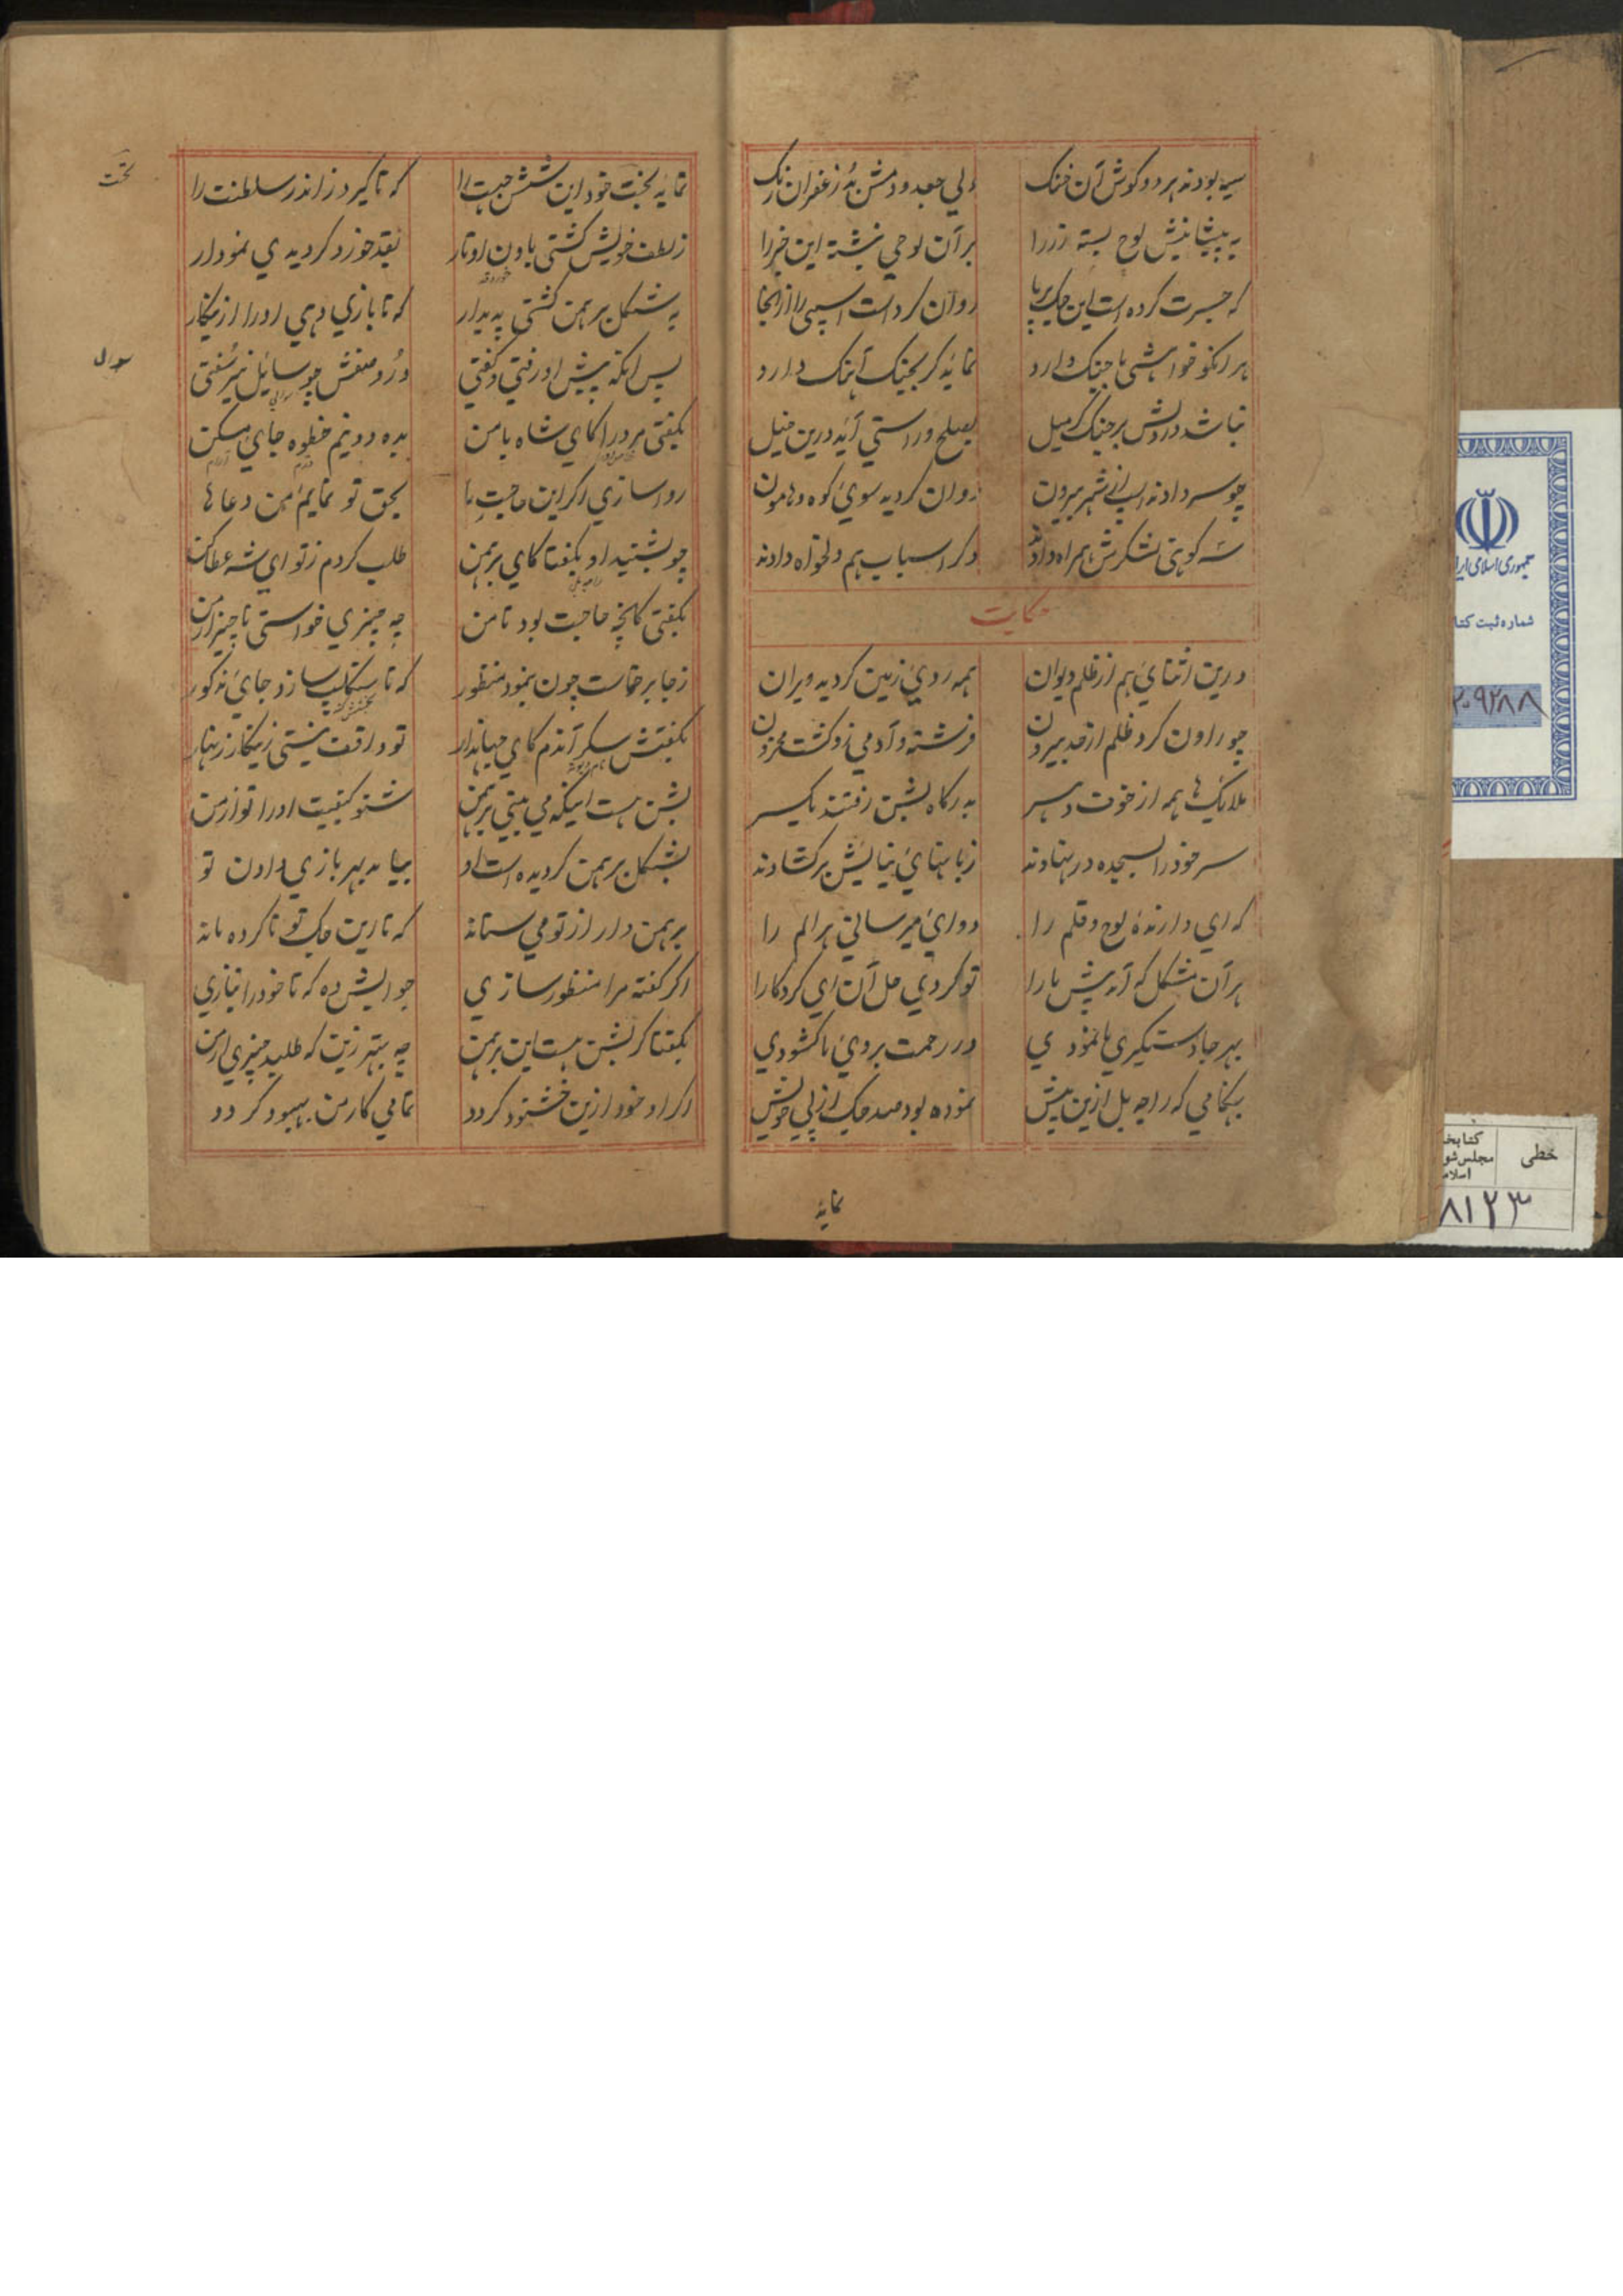 سیه بودند هر دو گوش آن خنک ولی جعد و دمش بد زعفران رنگ
به پیشانیش لوح بسته زر را بر آن لوحی نبشته این خبر را
که جسرت کرده است این جک برپا روان کرد است اسپی را از انجا
هر انکو خواهشی با جنک دارد نماید گر بجنک آهنک دارد
نباشد در دلش بر جنک گر میل بصلح و راستی آید درین خیل
چو سر دادند اسپ از شهر بیرون روان گردید سوی کوه و هامون
سه کوهنی لشکرش همراه دادند دگر اسباب هم دلخواه دادند
حکایت
درین اثنای هم از ظلم دیوان همه روی زمین گردید ویران
چو راون کرد ظلم از حد بیرون فرشته و آدمی زو گشت محزون
ملائک ها همه از خوف دهسر بدرگاه بشن رفتند یکسر
سر خود را بسجده در نهادند زبانهای نیایش بر گشادند
که ای دارنده لوح و قلم را دوای میرسانی هر الم را
هر آن مشکل که آمد پیش ما را تو کردی حل آن ای کردگارا
بهر جا دستگیری ها نمودی در رحمت بروی ما گشودی
بهنگامی که راجه بل ازین پیش نموده بود صد جک از پی خویش
نماید
نماید بخت خود این شش جهت را که تا گیرد ز اندر سلطنت را
ز لطف خویش گشتی باون اوتار بقد خورد گردیدی نمودار
به شکل برهمن گشتی پدیدار که تا بازی دهی او را ازینکار
پس انکه پیش او رفتی و گفتی در و صفش چو سائل نیز سفتی
بگفتی مر ورا کای شاه با من بده دو نیم خطوه جای مسکن
روا سازی اگر این حاجت ما بحق تو نمایم من دعا ها
چو بشنید او بگفتا کای برهمن طلب کردم ز تو ای شه عطا کن
بگفتی کانچه حاجت بود تا من چه چیزی خواستی ناچیز از من
ز جا برخاست چون بنمود منظور که تا سنکلپ سازد جای مذکور
بگفتش سکر آندم کای جهاندار تو واقف نیستی زینکار زنهار
بشن هست اینکه می بینی برهمن شنو کیفیت او را تو از من
بشکل برهمن گردیده است او بیامد بهر بازی دادن تو
برهمن وار از تو می ستاند که تا این جک تو ناکرده ماند
اگر گفته مرا منظور سازی جوابش ده که تا خود را نبازی
بگفتا گر بشن هست این برهمن چه بهتر زین که طلبد چیزی از من
اگر او خود ازین خشنود گردد تمامی کار من بهبود گردد
تخت
سوال
جمهوری اسلامی ایرا
شماره ثبت کتا
۲۰۹۲۸۸
خطی
کتابخا
مجلس شو
اسلام
۸۱۲۳